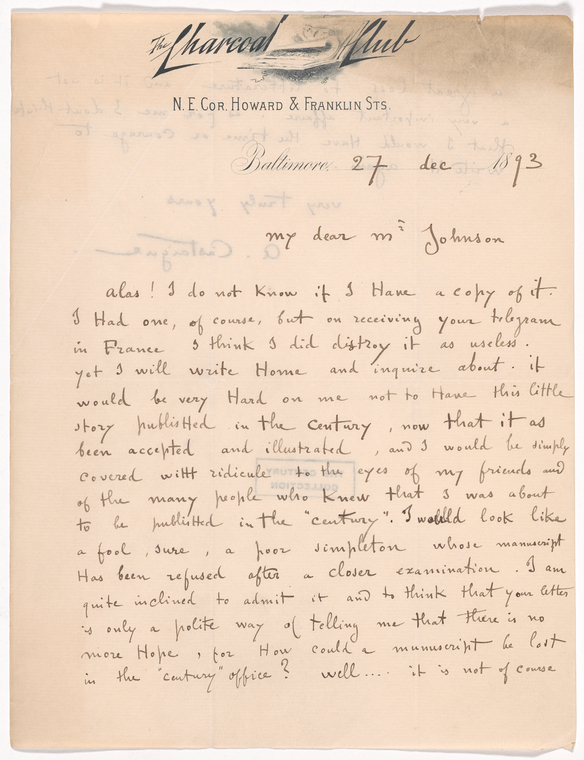 The Charcoal Club
N. E. Cor. Howard & Franklin Sts.
Baltimore, 27 dec 1893
my dear mr Johnson
Alas! I do not know if I Have a copy of it.
I Had one, of course, but on receiving your telegram
in France I think I did distroy it as useless.
yet I will write Home and inquire about. it
would be very Hard on me not to Have this little
story publisHed in the Century, now that it as
been accepted and illustrated, and I would be simply
covered witH ridicule to the eyes of my friends and
of the many people who Knew that I was about
to be publisHed in the "century". I would look like
a fool, sure, a poor simpleton whose manuscript
Has been refused after a closer examination. I am
quite inclined to admit it and to think that your letter
is only a polite way of telling me that there is no
more Hope, for How could a manuscript be lost
in the "century" office? well.... it is not of course